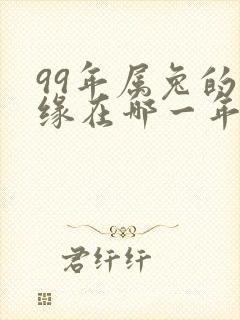 99年属兔的
缘在哪一年
君纤纤